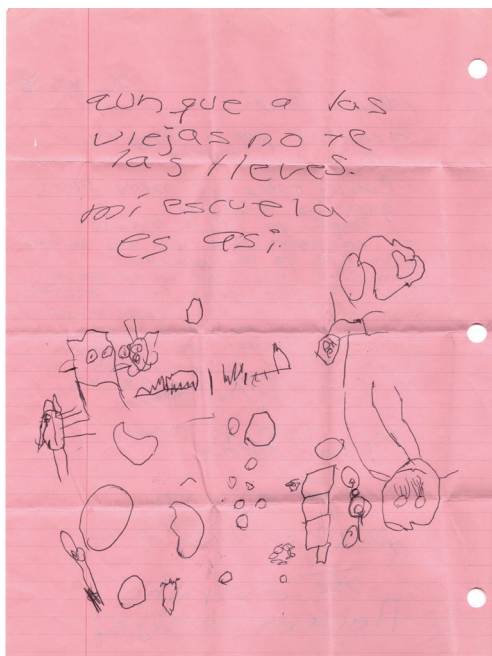 aunque a las
viejas no te
las lleves.
mi escuela
es así.